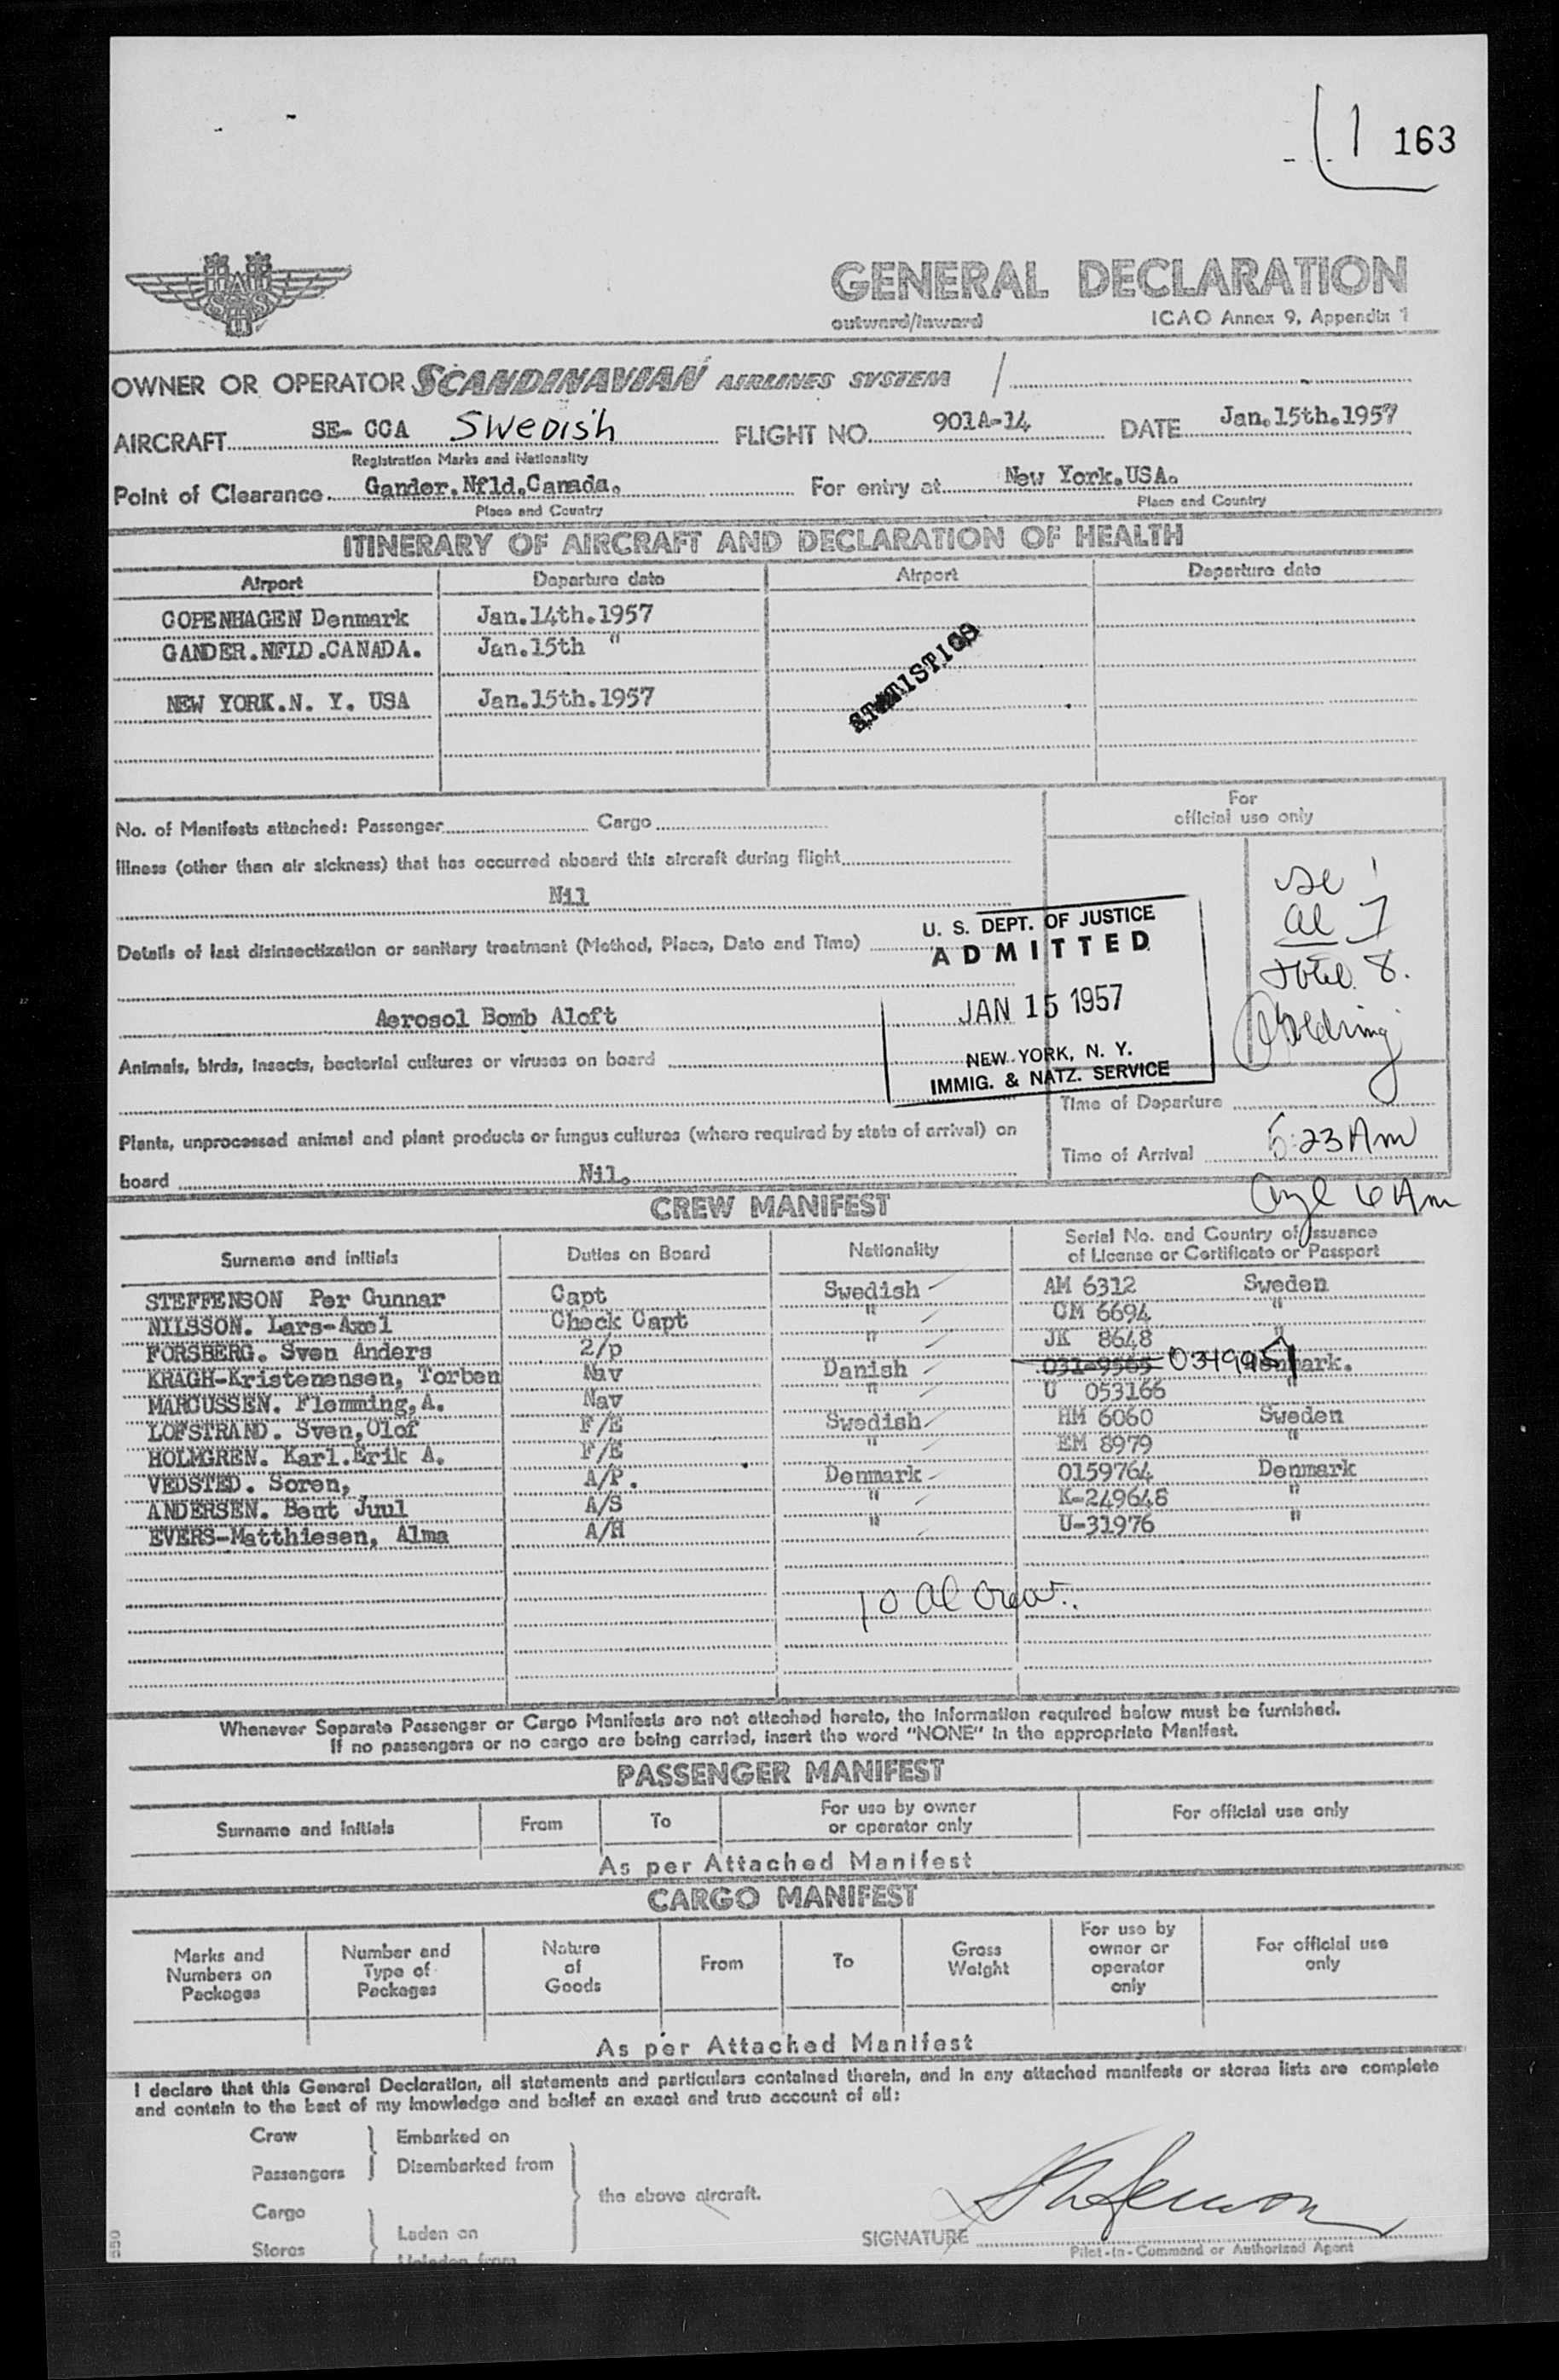 163
SAS
GENERAL DECLARATION
outward/inward ICAO Annex 9, Appendix 1
OWNER OR OPERATOR SCANDINAVIAN AIRLINES SYSTEM /
AIRCRAFT SE- CCA Swedish FLIGHT NO. 901A-14 DATE Jan.15th.1957
Registration Marks and Nationality
Point of Clearance Gander.Nfld.Canada. For entry at New York.USA.
Place and Country Place and Country
ITINERARY OF AIRCRAFT AND DECLARATION OF HEALTH
Airport Departure date Airport Departure date
COPENHAGEN Denmark Jan.14th.1957
GANDER.NFLD.CANADA. Jan.15th "
NEW YORK.N. Y. USA Jan.15th.1957
STATISTICS
For
official use only
No. of Manifests attached: Passenger Cargo
Illness (other than air sickness) that has occurred aboard this aircraft during flight
Nil
Details of last disinsectization or sanitary treatment (Method, Place, Date and Time)
Aerosol Bomb Aloft
Animals, birds, insects, bacterial cultures or viruses on board
U. S. DEPT. OF JUSTICE
ADMITTED
JAN 15 1957
NEW YORK, N. Y.
IMMIG. & NATZ. SERVICE
al 7
total 8.
Time of Departure
Plants, unprocessed animal and plant products or fungus cultures (where required by state of arrival) on
board Nil.
Time of Arrival 5:23 Am
6 Am
CREW MANIFEST
Surname and initials Duties on Board Nationality Serial No. and Country of Issuance
of License or Certificate or Passport
STEFFENSON Per Gunnar Capt Swedish AM 6312 Sweden
NILSSON. Lars-Axel Check Capt " CM 6694 "
FORSBERG. Sven Anders 2/p " JK 8648 "
KRAGH-Kristenensen, Torben Nav Danish 031-9565 Denmark.
MARCUSSEN. Flemming,A. Nav " U 053166 "
LOFSTRAND. Sven,Olof F/E Swedish HM 6060 Sweden
HOLMGREN. Karl.Erik A. F/E " EM 8979 "
VEDSTED. Soren, A/P. Denmark 0159764 Denmark
ANDERSEN. Bent Juul A/S " K-249648 "
EVERS-Matthiesen, Alma A/H " U-31976 "
10 al crew.
Whenever Separate Passenger or Cargo Manifests are not attached hereto, the information required below must be furnished.
If no passengers or no cargo are being carried, insert the word "NONE" in the appropriate Manifest.
PASSENGER MANIFEST
Surname and Initials From To For use by owner
or operator only For official use only
As per Attached Manifest
CARGO MANIFEST
Marks and
Numbers on
Packages
Number and
Type of
Packages
Nature
of
Goods
From
To
Gross
Weight
For use by
owner or
operator
only
For official use
only
As per Attached Manifest
I declare that this General Declaration, all statements and particulars contained therein, and in any attached manifests or stores lists are complete
and contain to the best of my knowledge and belief an exact and true account of all:
Crew Embarked on
Passengers Disembarked from
the above aircraft.
Cargo
Laden on
Stores
Unladen from
SIGNATURE
Pilot-in-Command or Authorized Agent